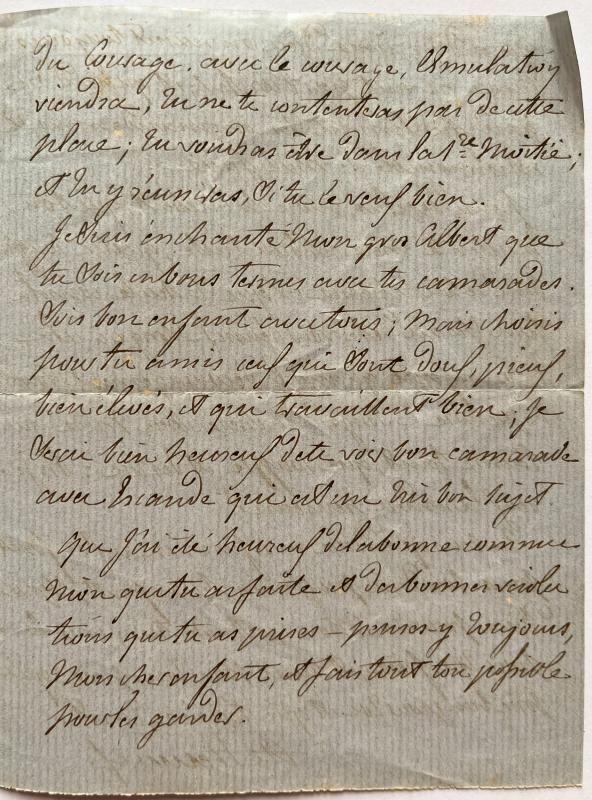 du Courage. avec le courage, l'émulation y
viendra, tu ne te contenteras pas de cette
place; tu voudras être dans la 1re Moitié;
et tu y réussiras, si tu le veux bien.
Je suis enchanté Mon gros Albert que
tu sois en bons termes avec tes camarades.
Sois bon enfant avec tous; Mais choisis
pour tes amis ceux qui sont doux, pieux,
bien élevés, et qui travaillent bien; Je
serai bien heureux de te voir bon camarade
avec Escande qui est un très bon sujet.
que J'ai été heureux de la bonne commu
nion que tu as faite et des bonnes résolu
tions que tu as prises – penses-y toujours,
Mon cher enfant, et fais tout ton possible
pour les garder.